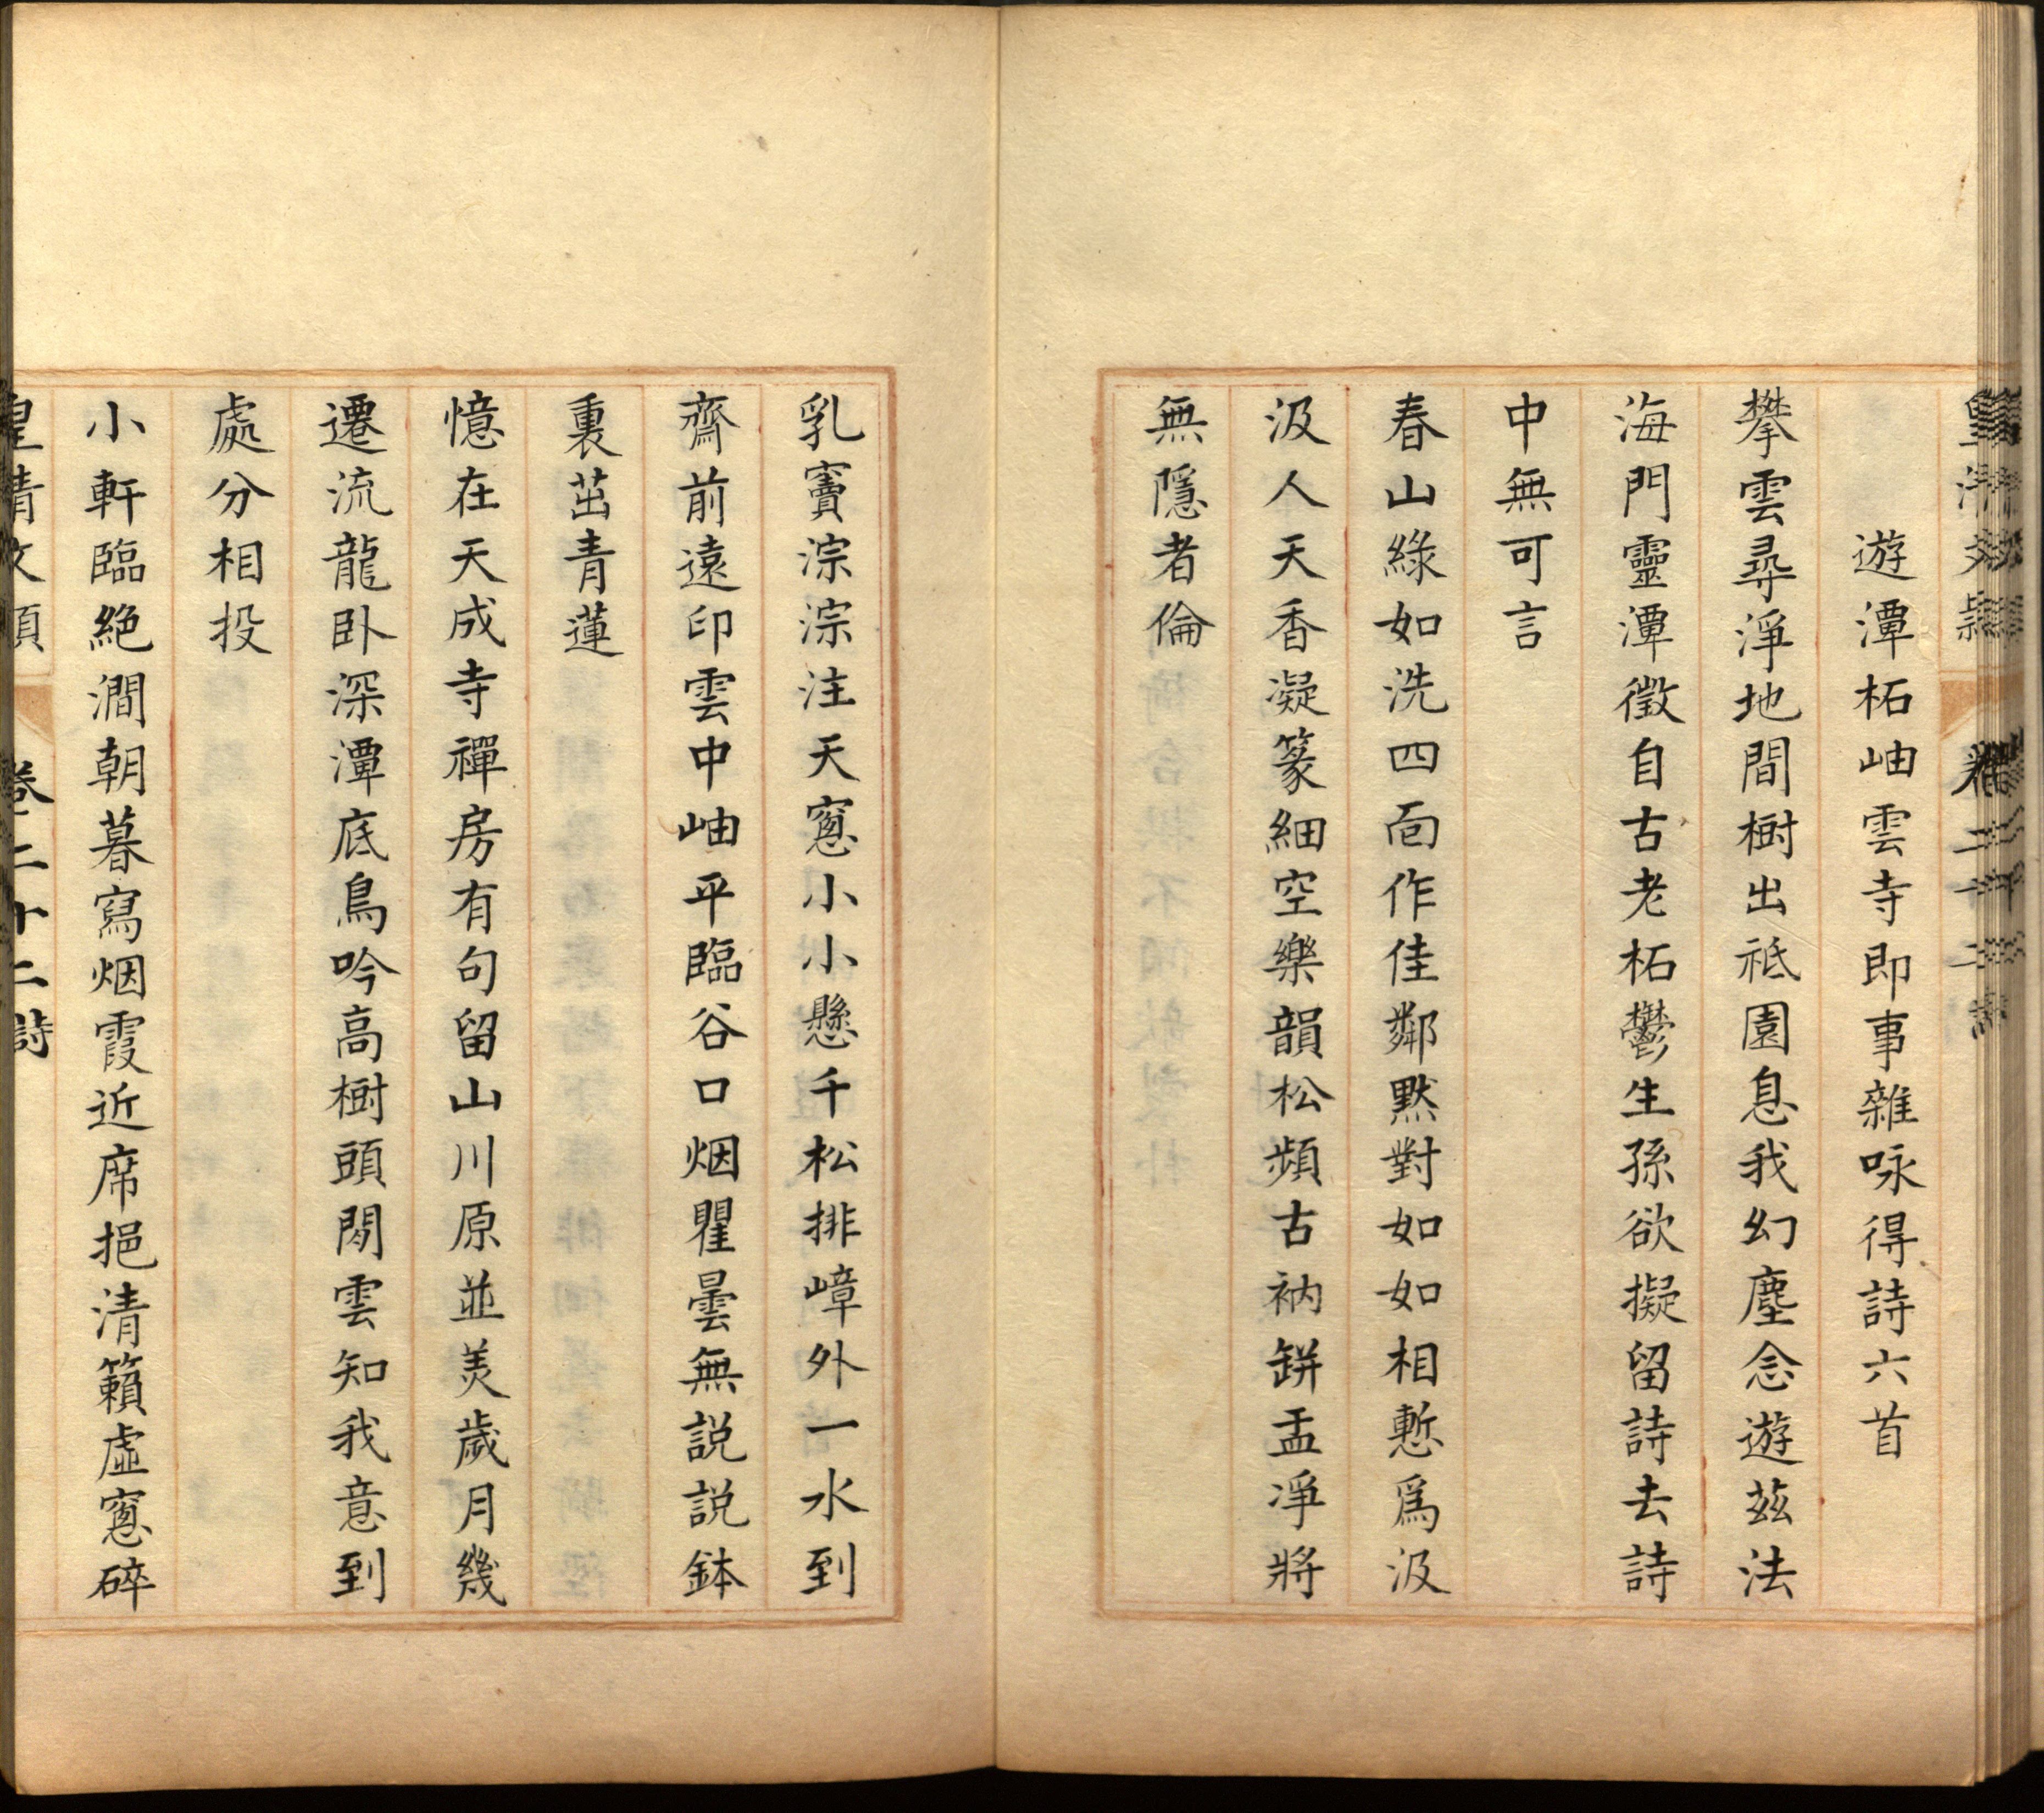 皇清文穎 卷二十二詩
遊潭柘岫雲寺即事雜咏得詩六首
攀雲尋淨地間樹出祗園息我幻塵念遊茲法
海門靈潭徵自古老柘鬱生孫欲擬留詩去詩
中無可言
春山綠如洗四面作佳鄰默對如如相慙爲汲
汲人天香凝篆細空樂韻松頻古衲缾盂凈將
無隱者倫
乳竇淙淙注天窻小小懸千松排嶂外一水到
齋前遠印雲中岫平臨谷口烟瞿曇無説説鉢
裏茁青蓮
憶在天成寺禪房有句留山川原並羙歲月幾
遷流龍卧深潭底鳥吟高樹頭閒雲知我意到
處分相投
小軒臨絶澗朝暮寫烟霞近席挹清籟虛窻碎
皇清文穎 卷二十二詩